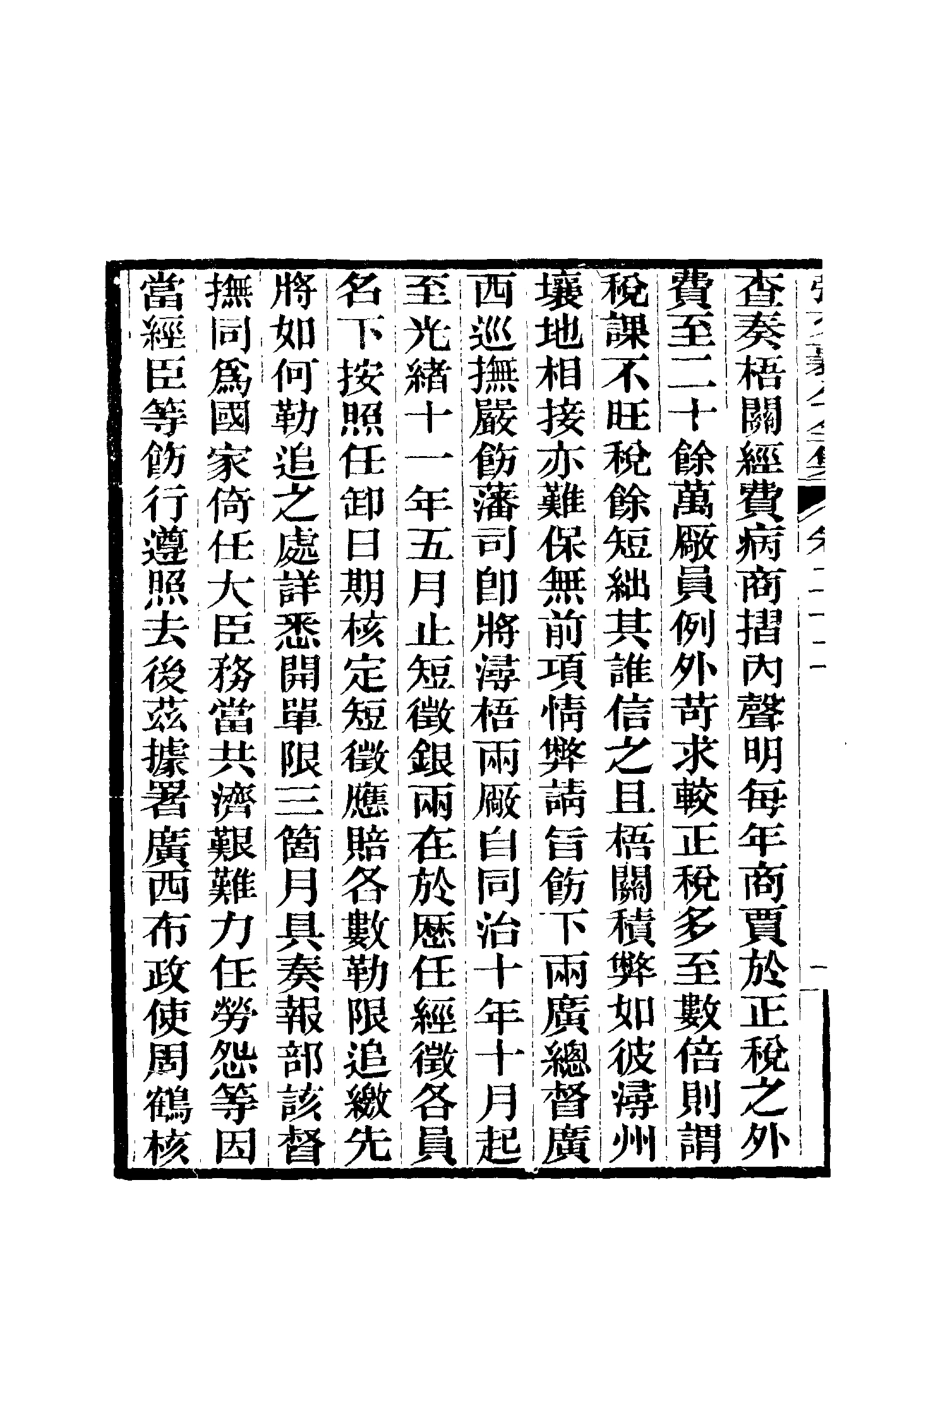 查奏梧關經費病商摺內聲明每年商賈於正稅之外
費至二十餘萬廠員例外苛求較正稅多至數倍則謂
稅課不旺稅餘短絀其誰信之且梧關積弊如彼潯州
壤地相接亦難保無前項情弊請旨飭下兩廣總督廣
西巡撫嚴飭藩司卽將潯梧兩廠自同治十年十月起
至光緒十一年五月止短徵銀兩在於歷任經徵各員
名下按照任卸日期核定短徵應賠各數勒限追繳先
將如何勒追之處詳悉開單限三箇月具奏報部該督
撫同爲國家倚任大臣務當共濟艱難力任勞怨等因
當經臣等飭行遵照去後茲據署廣西布政使周鶴核